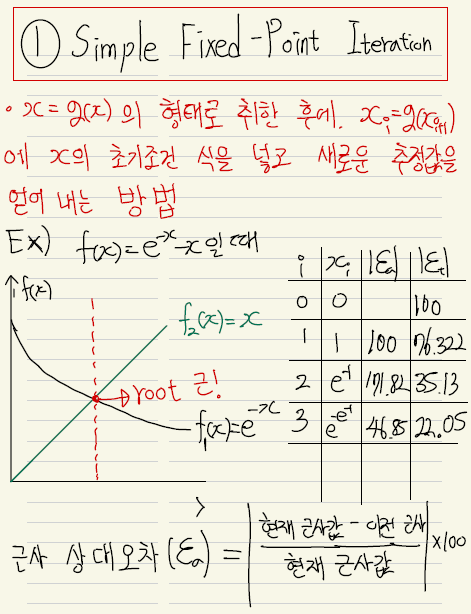 ① Simple Fixed-Point Iteration
• x=g(x) 의 형태로 취한 후에. xᵢ=g(xᵢ₊₁)
에 x의 초기조건 식을 넣고 새로운 추정값을
얻어 내는 방법
Ex) f(x)=e⁻ˣ-x일 때
f(x)
f₂(x)=x
root 근!
f₁(x)=e⁻ˣ
i xᵢ |εₐ| |εₜ|
0 0 100
1 1 100 76.322
2 e⁻¹ 171.82 35.13
3 e^-e⁻¹ 46.85 22.05
근사 상대오차(εₐ) = | 현재 근사값 - 이전 근사 / 현재 근사값 | ×100